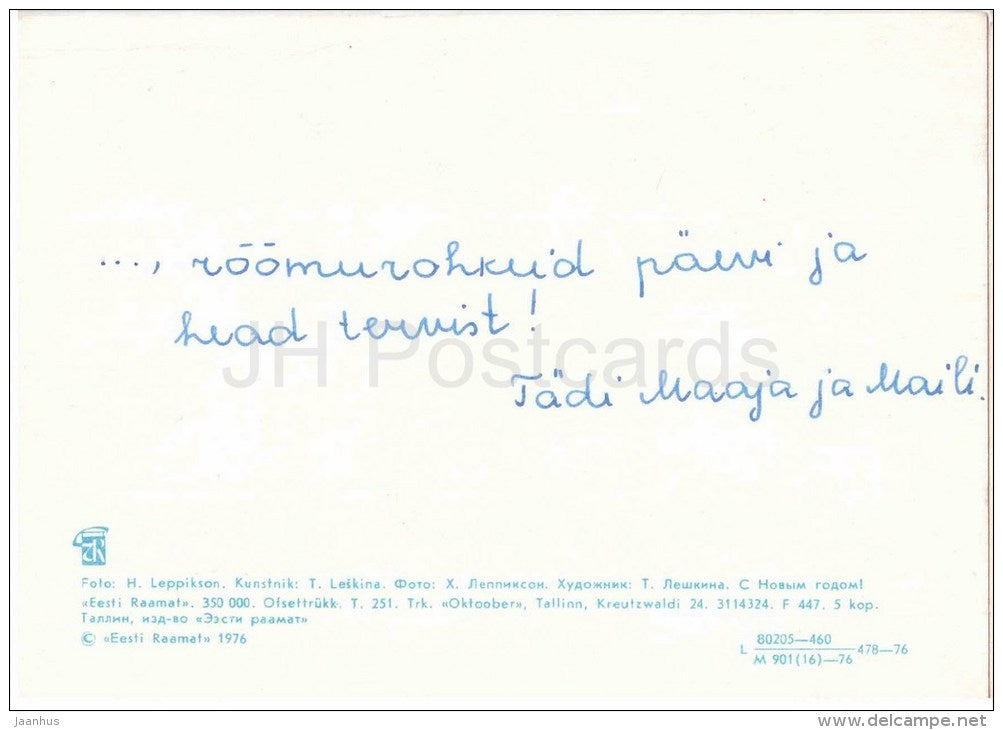 ..., rõõmurohkeid päevi ja
head tervist!
JH Postcards
Tädi Maaja ja Maili.
Foto: H. Leppikson. Kunstnik: T. Leškina. Фото: Х. Леппиксон. Художник: Т. Лешкина. С Новым годом!
«Eesti Raamat». 350 000. Ofsettrükk. T. 251. Trk. «Oktoober», Tallinn, Kreutzwaldi 24. 3114324. F 447. 5 kop.
Таллин, изд-во «Ээсти раамат»
© «Eesti Raamat» 1976
L 80205—460 478—76
M 901(16)—76
jaanhus
www.delcampe.net